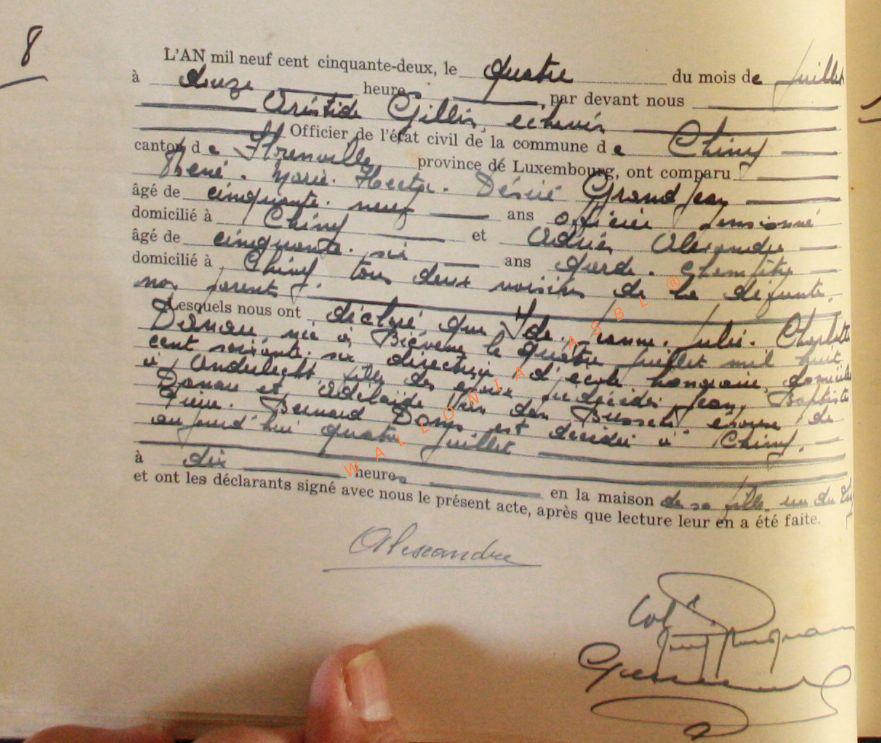 8
L'AN mil neuf cent cinquante-deux, le quatre du mois de juillet
à douze heures par devant nous
Aristide Gillin, échevin
Officier de l'état civil de la commune de Chiny
canton de Florenville province de Luxembourg, ont comparu
René. Marie. Hector. Désiré Grandjean
âgé de cinquante. neuf ans officier pensionné
domicilié à Chiny et Adrien Alexandre
âgé de cinquante. six ans garde. champêtre
domicilié à Chiny, tous deux voisins de la défunte,
non parents
Lesquels nous ont déclaré que Ida. Jeanne. Julie. Charlotte
Danau, née à Bièvene le quatre juillet mil huit
cent soixante. six directrice d'école honoraire, domiciliée
à Anderlecht fille des époux prédécédés Jean, Baptiste
Danau et Adelaïde Van den Bussche, épouse de
Pierre. Bernard est décédée à Chiny,
aujourd'hui quatre juillet
à dix heures en la maison de sa fille, rue du
et ont les déclarants signé avec nous le présent acte, après que lecture leur en a été faite.
Alexandre
WALLONIA ASBL ®